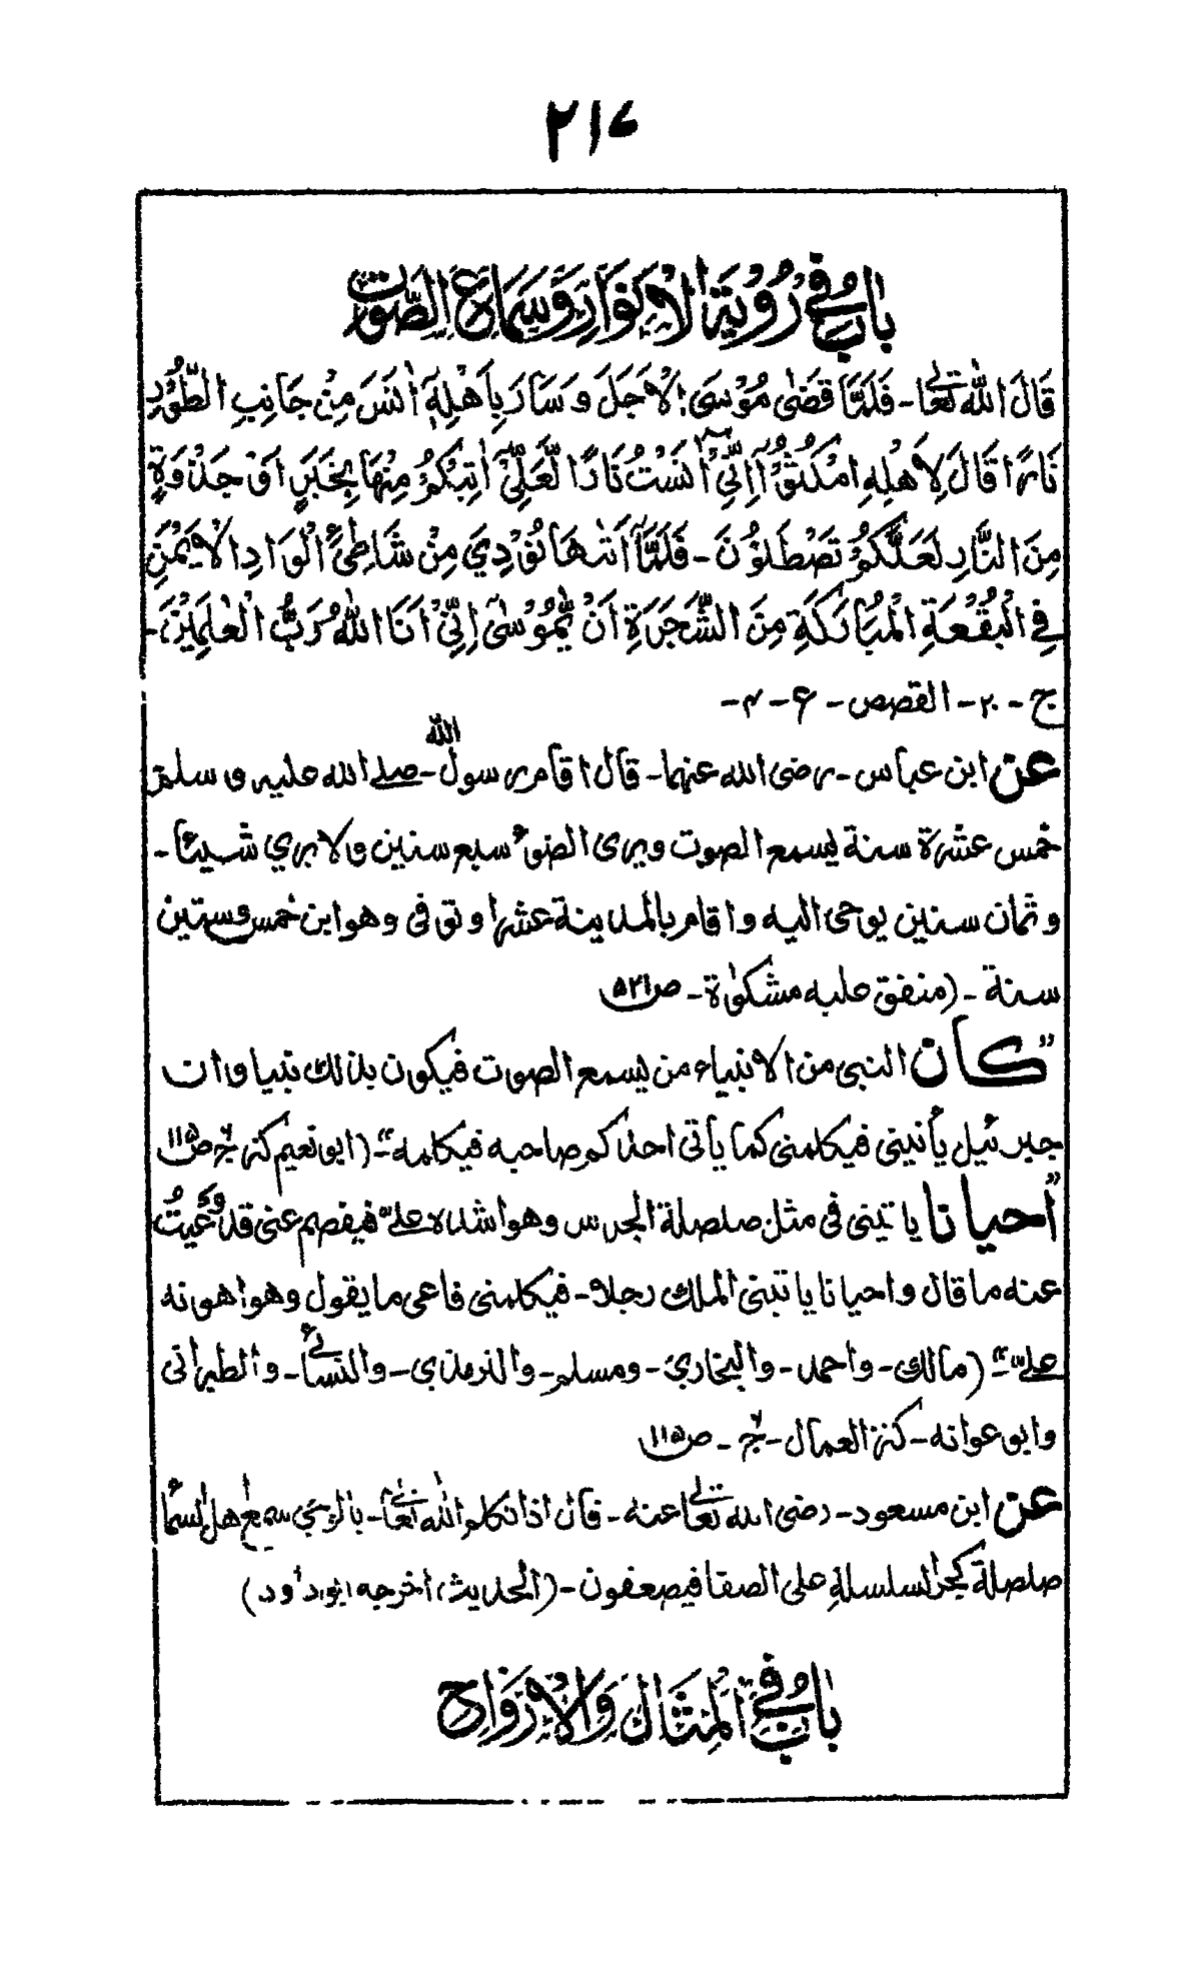 ۲۱۷
بَابٌ فِيْ رُؤْيَةِ الْاَنْوَارِ وَسَمَاعِ الصَّوْتِ
قَالَ اللهُ تَعَالٰی۔ فَلَمَّا قَضٰی مُوْسَی الْاَجَلَ وَسَارَ بِاَهْلِهٖٓ اٰنَسَ مِنْ جَانِبِ الطُّوْرِ
نَارًا قَالَ لِاَهْلِهِ امْكُثُوْٓا اِنِّيْٓ اٰنَسْتُ نَارًا لَّعَلِّيْٓ اٰتِيْكُمْ مِنْهَا بِخَبَرٍ اَوْ جَذْوَةٍ
مِنَ النَّارِ لَعَلَّكُمْ تَصْطَلُوْنَ۔ فَلَمَّآ اَتٰىهَا نُوْدِيَ مِنْ شَاطِئِ الْوَادِ الْاَيْمَنِ
فِي الْبُقْعَةِ الْمُبَارَكَةِ مِنَ الشَّجَرَةِ اَنْ يّٰمُوْسٰٓی اِنِّيْٓ اَنَا اللهُ رَبُّ الْعٰلَمِيْنَ۔
ج۔ ۲۰۔ القصص۔ ع۔ ۴۔
عن ابن عباس۔ رضی الله عنهما۔ قال اقام رسول الله۔ صلے الله علیه و سلم
خمس عشرة سنة یسمع الصوت ویری الضوء سبع سنین ولا یري شیئا۔
و ثمان سنین یوحی الیه واقام بالمدینة عشرا وتوفی وهو ابن خمس وستین
سنة۔ (متفق علیه مشکوٰة۔ ص۵۲۱
”کان النبی من الانبیاء من یسمع الصوت فیکون بذالك نبیا وان
جبرئیل یأتینی فیکلمنی کما یأتی احدکم صاحبه فیکلمه“۔ (ابو نعیم کنز ج ص۱۱۵
”احیانا یاتینی فی مثل صلصلة الجرس وهو اشده علیّ فیفصم عنی قد وَعَیتُ
عنه ما قال واحیانا یاتینی الملك رجلا۔ فیکلمنی فاعی ما یقول وهو اهونه
علیّ“۔ (مالك۔ واحمد۔ والبخاري۔ ومسلم۔ والترمذي۔ والنسائی۔ والطبرانی
وابو عوانه۔ کنز العمال۔ ج۔ ص۱۱۵
عن ابن مسعود۔ رضی الله تعالٰی عنه۔ قال اذا تکلم الله تعالٰی۔ بالوحي سمع اهل السما
صلصلة کجر السلسلةِ علی الصفا فیصعقون۔ (الحدیث، اخرجه ابو داود)
بَابٌ فِي الْمِثَالِ وَالْاَرْوَاحِ